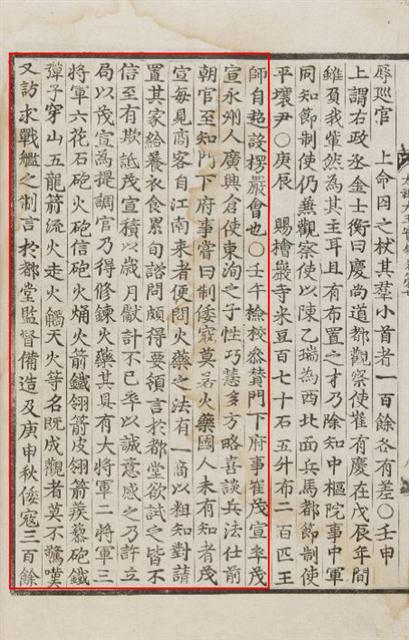 辱巡官　上命囚之杖其羣小首者一百餘各有差○壬申
上謂右政丞金士衡曰慶尚道都觀察使崔有慶在戊辰年間
雖負我輩然爲其主耳且有布置之才乃除知中樞院事中軍
同知節制使仍兼觀察使以陳乙瑞爲西北面兵馬都節制使
平壤尹○庚辰　賜檜巖寺米豆百七十石五升布二百匹王
師自超設楞嚴會也○壬午檢校參贊門下府事崔茂宣卒茂
宣永州人廣興倉使東洵之子性巧慧多方略喜談兵法仕前
朝官至知門下府事嘗曰制倭寇莫若火藥國人未有知者茂
宣每見商客自江南來者便問火藥之法有一商以粗知對請
置其家給養衣食累旬諮問頗得要領言於都堂欲試之皆不
信至有欺詆茂宣積以歲月獻計不已卒以誠意感之乃許立
局以茂宣爲提調官乃得修鍊火藥其具有大將軍二將軍三
將軍六花石砲火砲信砲火㷁火箭鐵翎箭皮翎箭蒺藜砲鐵
彈子穿山五龍箭流火走火觸天火等名旣成觀者莫不驚嘆
又訪求戰艦之制言於都堂監督備造及庚申秋倭寇三百餘